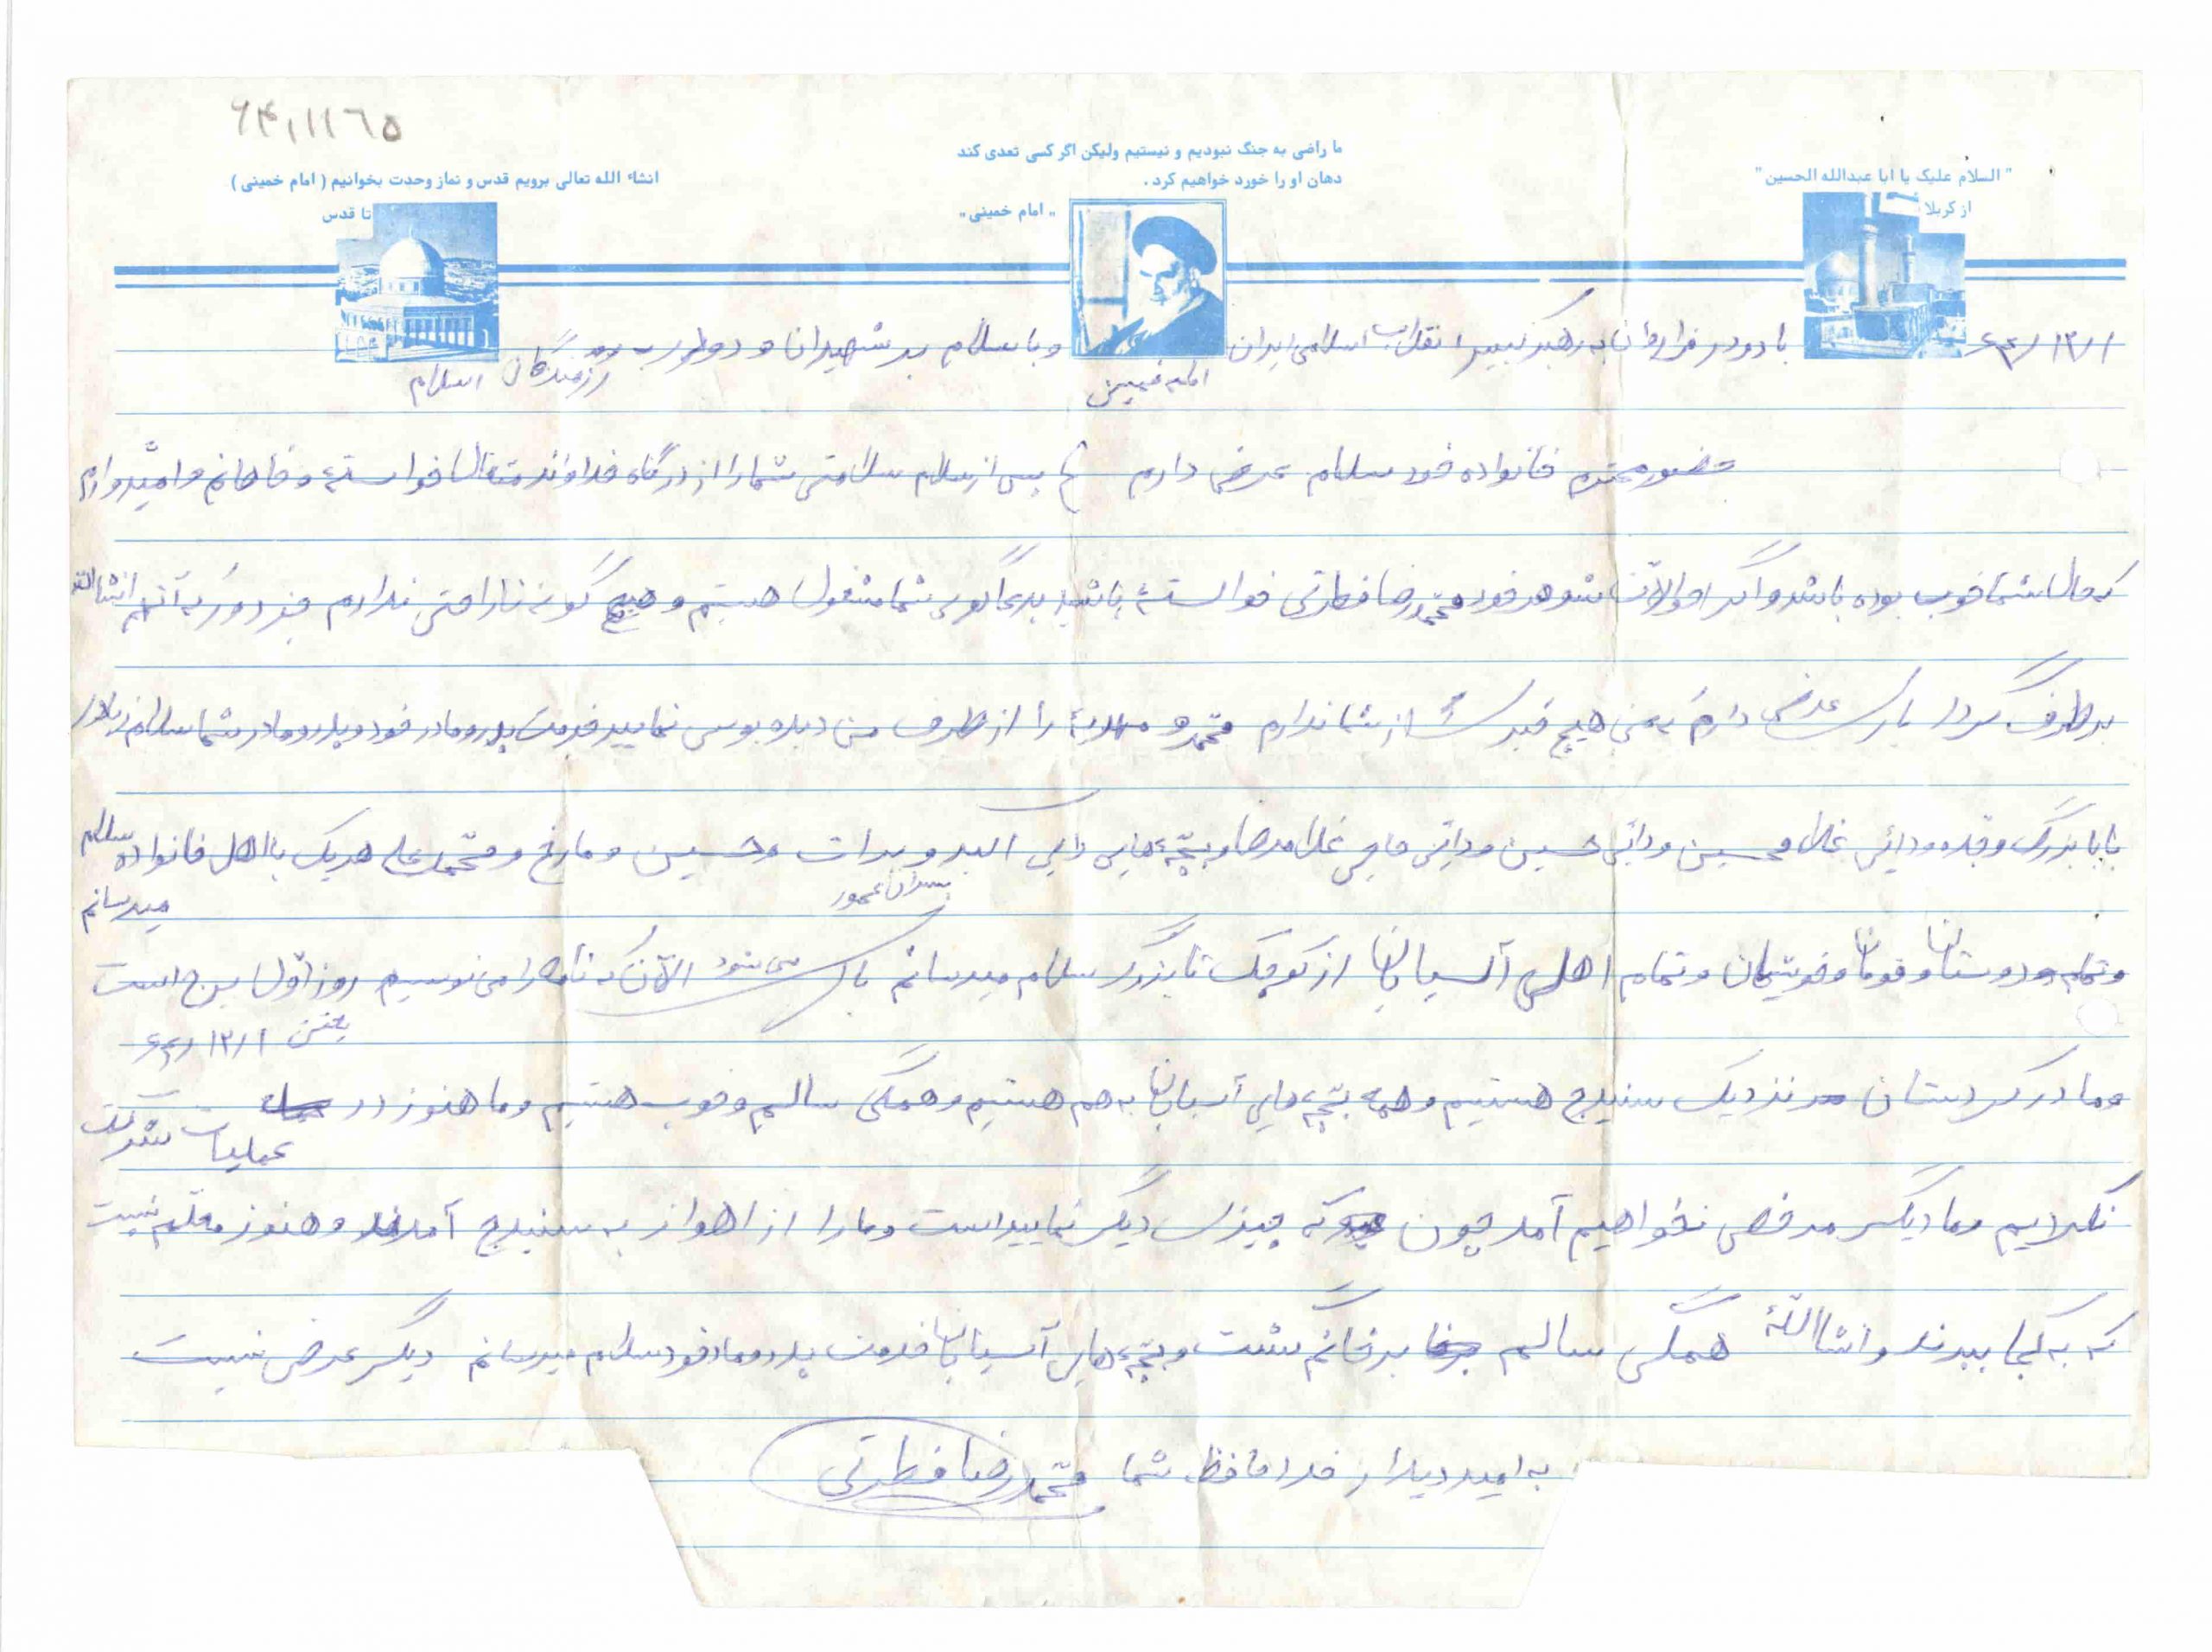 ۶۴,۱۱۶۵
ما راضی به جنگ نبودیم و نیستیم ولیکن اگر کسی تعدی کند
دهان او را خورد خواهیم کرد .
" امام خمینی "
" السلام علیک یا ابا عبدالله الحسین "
از کربلا
انشاء الله تعالی برویم قدس و نماز وحدت بخوانیم ( امام خمینی )
تا قدس
با درود فراوان به رهبر کبیر انقلاب اسلامی ایران امام خمینی و با سلام بر شهیدان و درود بر رزمندگان اسلام
حضور محترم خانواده خود سلام عرض دارم پس از سلام سلامتی شما را از درگاه خداوند متعال خواسته و خاهانم و امیدوارم
که حال شما خوب بوده باشد و اگر احوالات شوهر خود محمدرضا فطرتی خواسته باشید بدعاگویی شما مشغول هستیم و هیچ گونه ناراحتی ندارم جز دوری که آنهم انشاالله
برطرف گردد باری عرض دارم که من هیچ خبری از شما ندارم محمد و مهدیه را از طرف من دیده بوسی نمایید خدمت پدر و مادر خود و پدر و مادر شما سلام
بابابزرگ و دائی غلامحسین و دائی حسین و دائی حاجی غلامرضا و بچه‌هایی دایی اکبر و برات و حسین و محمدعلی هریک با اهل خانواده سلام
میرسانم
پسران عمو
و تمام دوستان و قومان و خویشان و تمام اهل آسیابان از کوچک تا بزرگ سلام میرسانم باری می‌شود الآن که نامه را می‌نویسم روز اول برج است
یعنی ۶۴/۱۲/۱
و ما در کردستان نزدیک سنندج هستیم و همه بچه‌هایی آسیابان به هم هستیم و همگی سالم و خوب هستیم و ما هنوز در عملیات شرکت
نکردیم و ما دیگر مرخصی نخواهیم آمد چون که چیزی دیگر نمایید است و ما را از اهواز به سنندج آمدند و هنوز معلوم نیست
که به کجا ببرند و انشاالله همگی سالم بر خانم گشت و بچه‌هایی آسیابان خدمت پدر و مادر خود سلام میرسانم دیگر عرضی نیست
به امید دیدار خداحافظ شما محمدرضا فطرتی